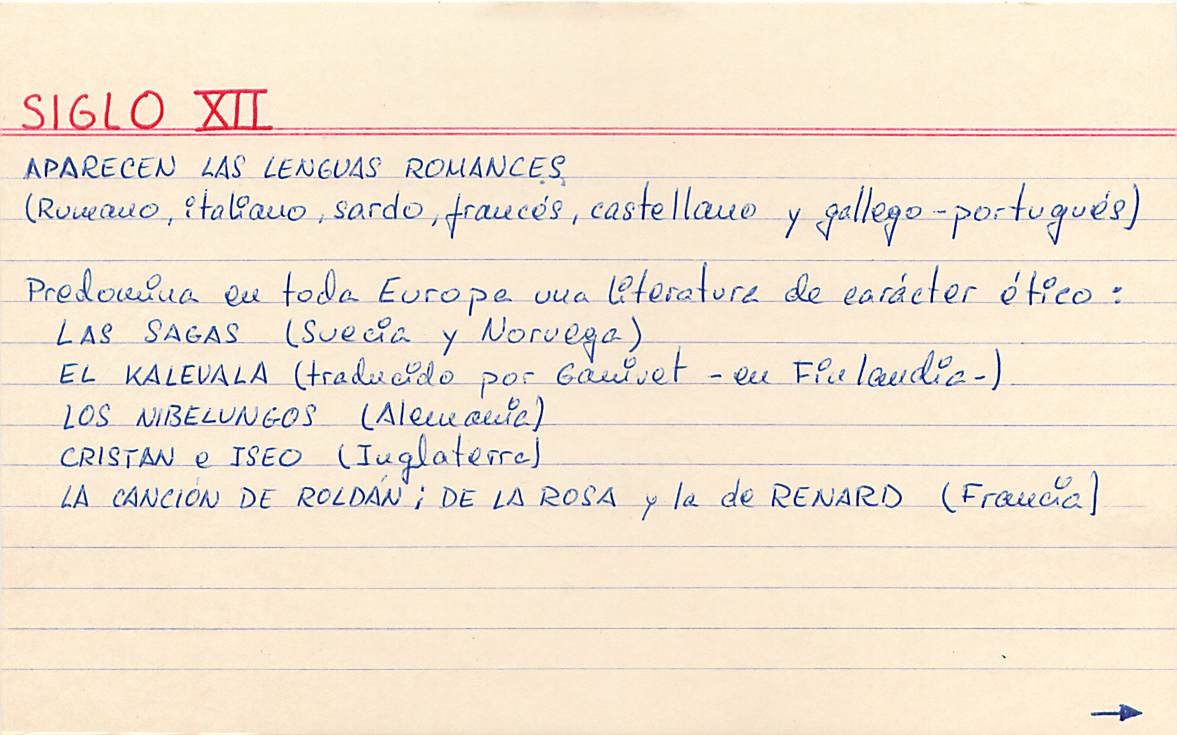 SIGLO XII
APARECEN LAS LENGUAS ROMANCES
(Rumano, italiano, sardo, francés, castellano y gallego-portugués)
Predomina en toda Europa una literatura de carácter ético:
LAS SAGAS (Suecia y Noruega)
EL KALEVALA (traducido por Ganivet - en Finlandia-)
LOS NIBELUNGOS (Alemania)
CRISTAN e ISEO (Inglaterra)
LA CANCIÓN DE ROLDÁN; DE LA ROSA y la de RENARD (Francia)